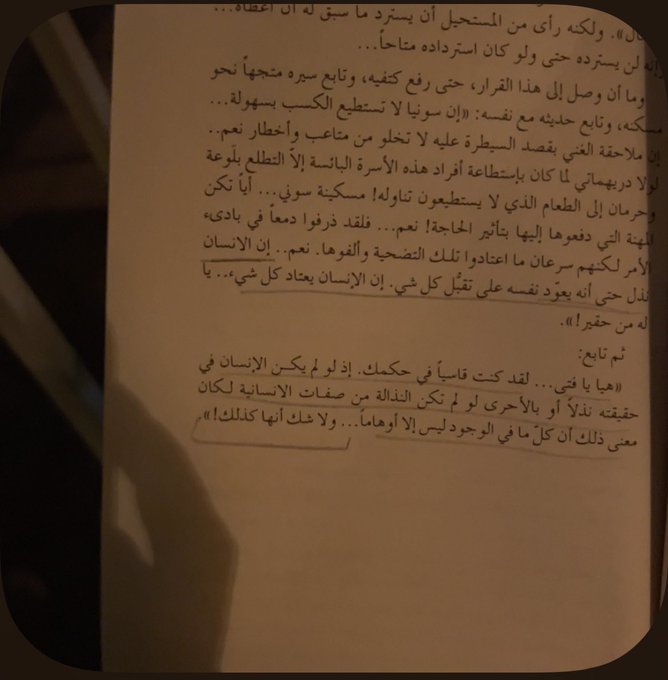 المال». ولكنه رأى من المستحيل أن يسترد ما سبق له أن أعطاه...
وإنه لن يسترده حتى ولو كان استرداده متاحاً...
وما أن وصل إلى هذا القرار، حتى رفع كتفيه، وتابع سيره متجهاً نحو
مسكنه، وتابع حديثه مع نفسه: «إن سونيا لا تستطيع الكسب بسهولة...
إن ملاحقة الغني بقصد السيطرة عليه لا تخلو من متاعب وأخطار نعم..
لولا دريهماتي لما كان بإستطاعة أفراد هذه الأسرة البائسة إلاَّ التطلع بلَوعة
وحرمان إلى الطعام الذي لا يستطيعون تناوله! مسكينة سوني... أياً تكن
المهنة التي دفعوها إليها بتأثير الحاجة! نعم... فلقد ذرفوا دمعاً في بادىء
الأمر لكنهم سرعان ما اعتادوا تلك التضحية وألفوها. نعم.. إن الانسان
نذل حتى أنه يعوّد نفسه على تقبُّل كل شي. إن الإنسان يعتاد كل شيء.. يا
له من حقير!».
ثم تابع:
«هيا يا فتى... لقد كنت قاسياً في حكمك. إذ لو لم يكن الإنسان في
حقيقته نذلاً أو بالأحرى لو لم تكن النذالة من صفات الانسانية لكان
معنى ذلك أن كلّ ما في الوجود ليس إلا أوهاماً... ولا شك أنها كذلك!».